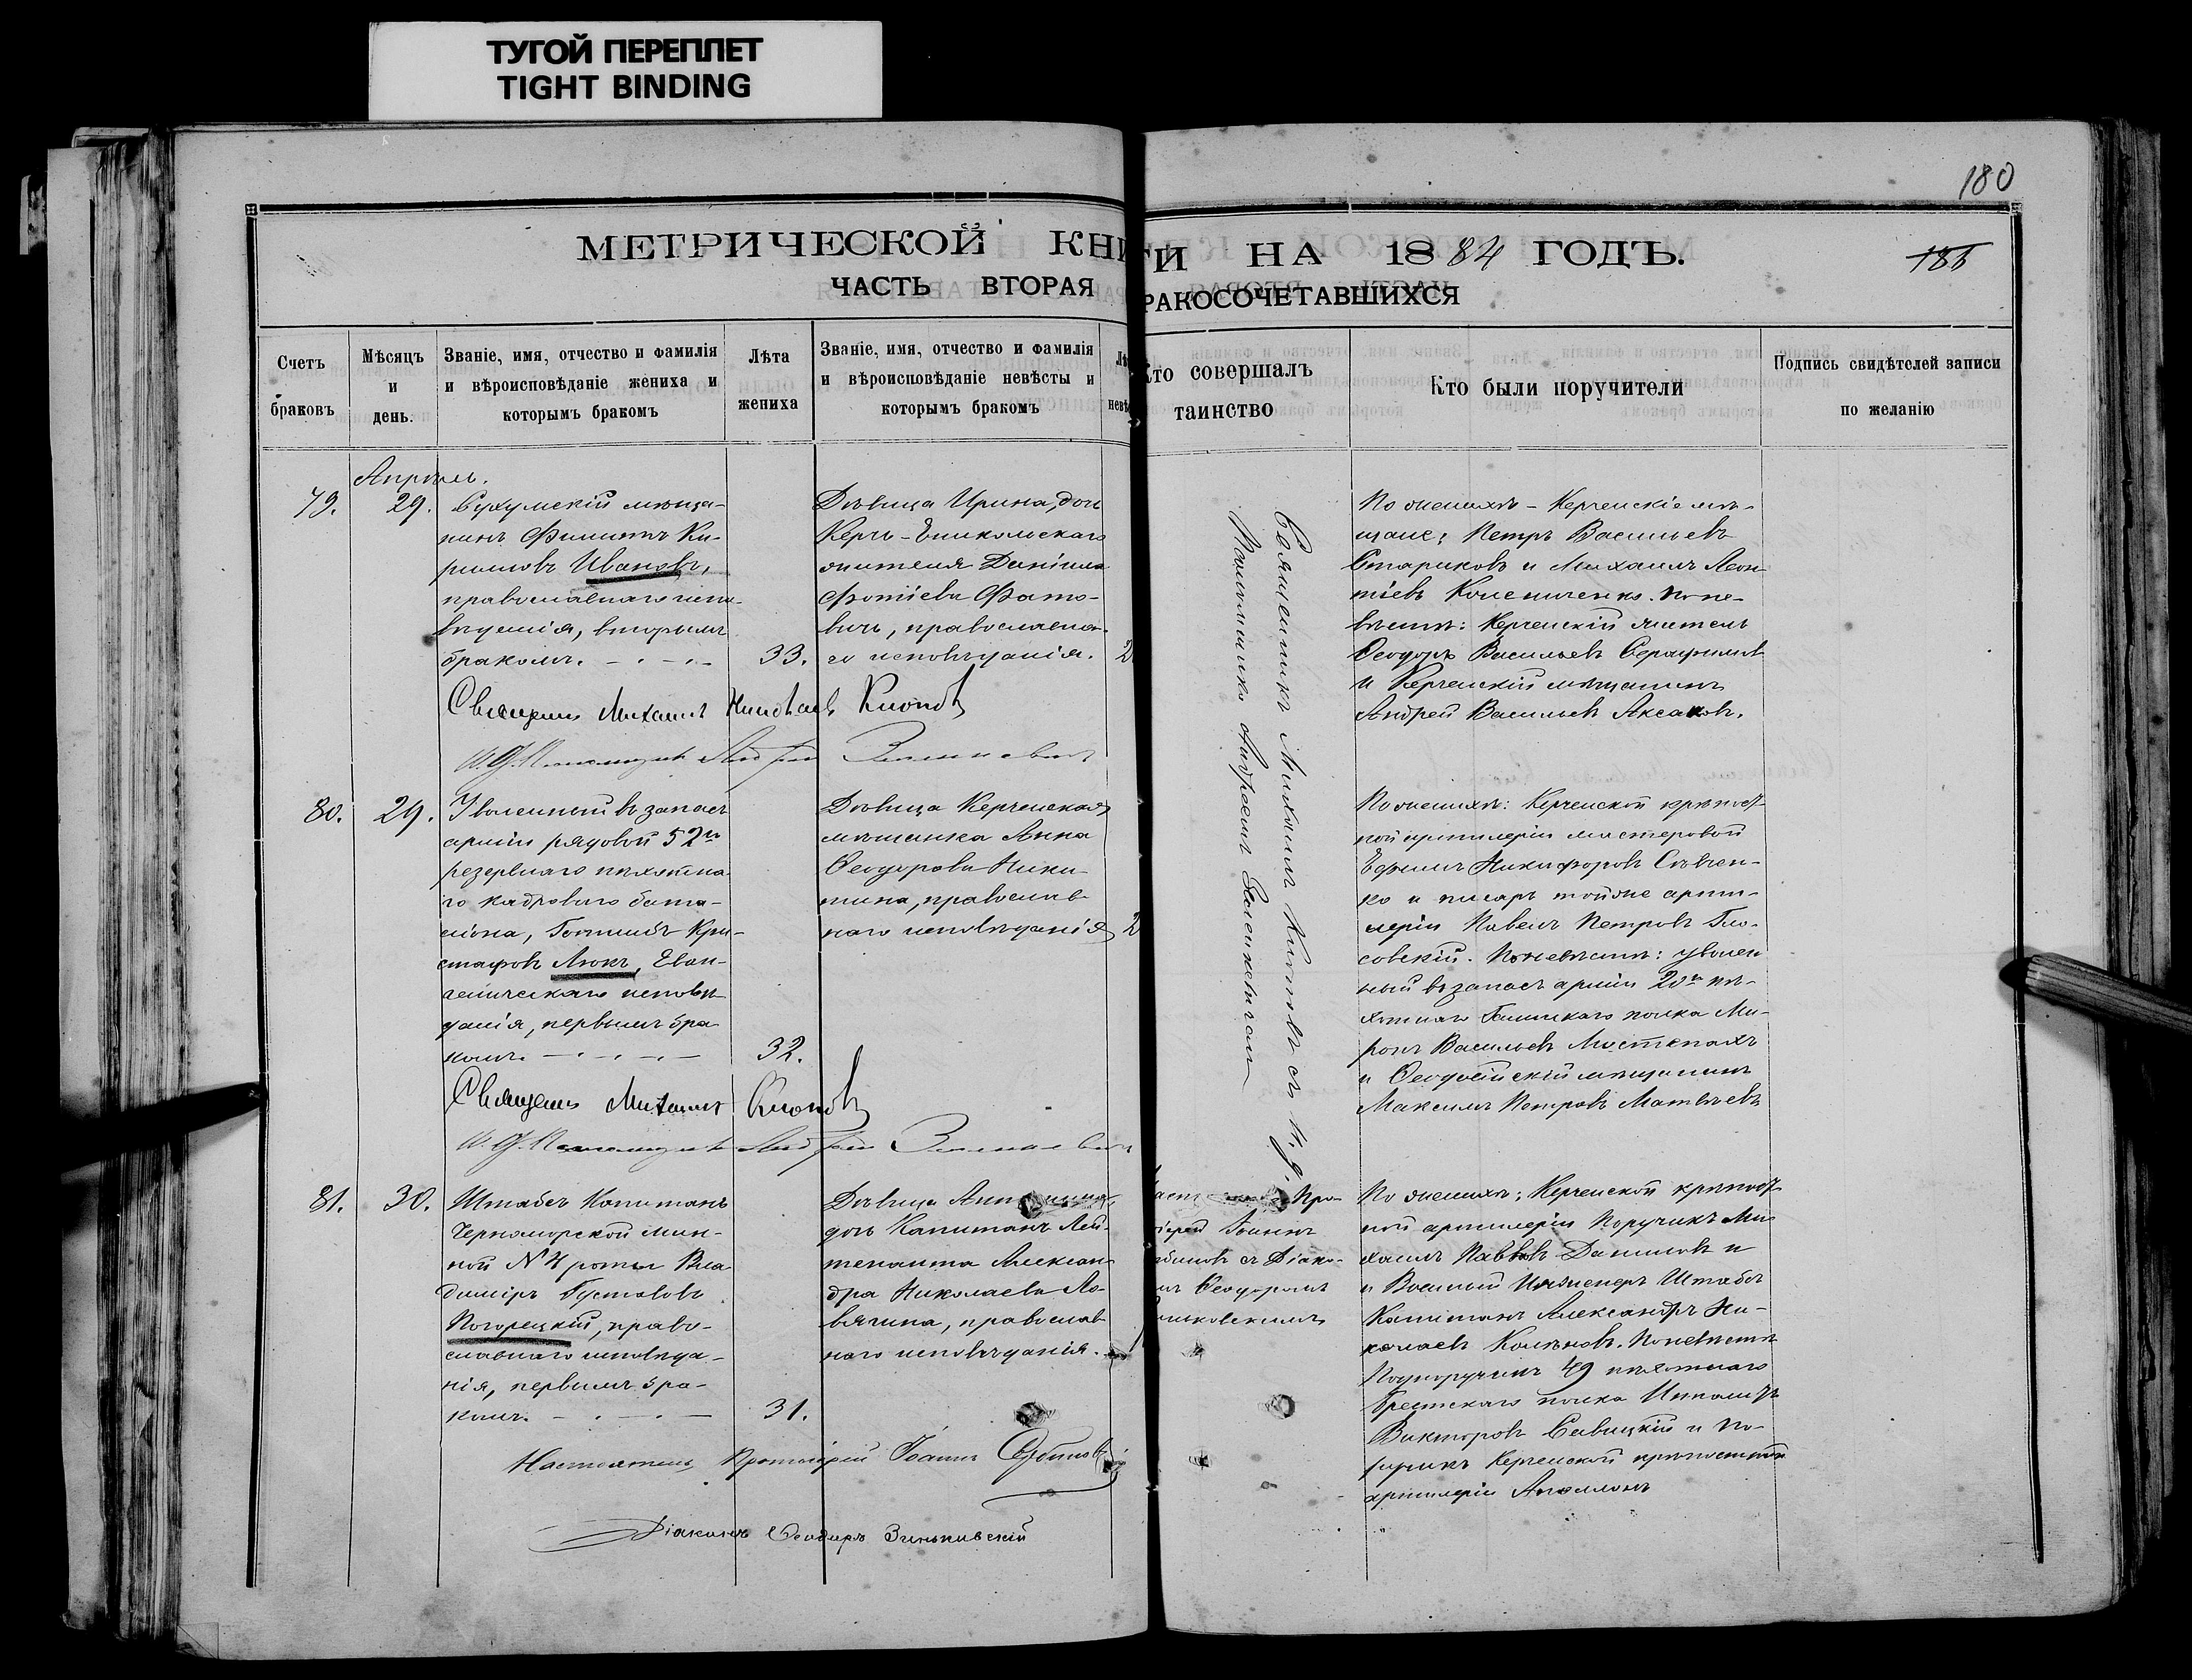 ТУГОЙ ПЕРЕПЛЕТ
TIGHT BINDING
180
МЕТРИЧЕСКОЙ КНИ
ГИ НА 1884 ГОДЪ.
186
ЧАСТЬ ВТОРАЯ
РАКОСОЧЕТАВШИХСЯ
Счетъ
браковъ
Мѣсяцъ
и
день.
Званіе, имя, отчество и фамилія
и вѣроисповѣданіе жениха и
которымъ бракомъ
Лѣта
жениха
Званіе, имя, отчество и фамилія
и вѣроисповѣданіе невѣсты и
которымъ бракомъ
Лѣ
невѣ
Кто совершалъ
таинство
Кто были поручители
Подпись свидѣтелей записи
по желанію
Апрѣль.
79.
29.
Сухумскій мѣща-
нинъ Филиппъ Ки-
рилловъ Ивановъ,
православнаго испо-
вѣданія, вторымъ
бракомъ.
33.
Дѣвица Ирина, дочь
Керчь-Еникольскаго
жителя Даніила
Фотіева Фато-
вичъ, православна-
го исповѣданія.
2
Священникъ Михаилъ
Андрей
По женихѣ - Керченскіе мѣ-
щане: Петръ Васильевъ
Стариковъ и Михаилъ Леон-
тіевъ. По не-
вѣстѣ: Керченскій житель
Ѳеодоръ Васильевъ Серафимовъ
и Керченскій мѣщанинъ
Андрей Васильевъ Аксаковъ.
Священникъ Михаилъ съ и. д.
Псаломщика Андреемъ
80.
29.
Уволенный въ запасъ
арміи рядовой 52го
резервнаго пѣхотна-
го кадроваго бата-
ліона, Готлибъ Кри-
стофовъ Люкъ, Еван-
гелическаго исповѣ-
данія, первымъ бра-
комъ.
32.
Дѣвица Керченская
мѣщанка Анна
Ѳеодорова Ники-
тина, православ-
наго исповѣданія
2
Священникъ Михаилъ
Андрей
По женихѣ: Керченской крѣпост-
ной артилеріи мастеровой
Ефимъ Никифоровъ Сѣвчен-
ко и писарь той же арти-
леріи Павелъ Петровъ Гло-
совскій. По невѣстѣ: уволен
ный въ запасъ арміи 20го пѣ-
хотнаго Галицкаго полка Ми-
ронъ Васильевъ
и Ѳеодосійскій мѣщанинъ
Максимъ Петровъ Матвѣевъ
81.
30.
Штабсъ Капитанъ
Черноморской мин-
ной № 4 роты Вла-
диміръ Густавовъ
Погорецкій, право-
славнаго исповѣда-
нія, первымъ бра-
комъ.
31.
Дѣвица
дочь Капитанъ Лей-
тенанта Алексан-
дра Николаева Ло-
вягина, православ-
наго исповѣданія.
Про-
іерей Іоаннъ
съ Діако-
мъ Ѳеодоромъ
иньковскимъ
По женихѣ: Керченской крѣпост-
ной артилеріи Поручикъ Ми-
хаилъ Павловъ Даниловъ и
и Военный Инженеръ Штабсъ
Капитанъ Александръ Ни-
колаевъ. По невѣстѣ
Подпоручикъ 49 пѣхотнаго
Брестскаго полка Ипполитъ
Викторовъ Савицкій и По-
ручикъ Керченской крѣпостной
артилеріи Аполлонъ
Настоятель Протоіерей Іоаннъ
Діаконъ Ѳеодоръ Зиньковскій